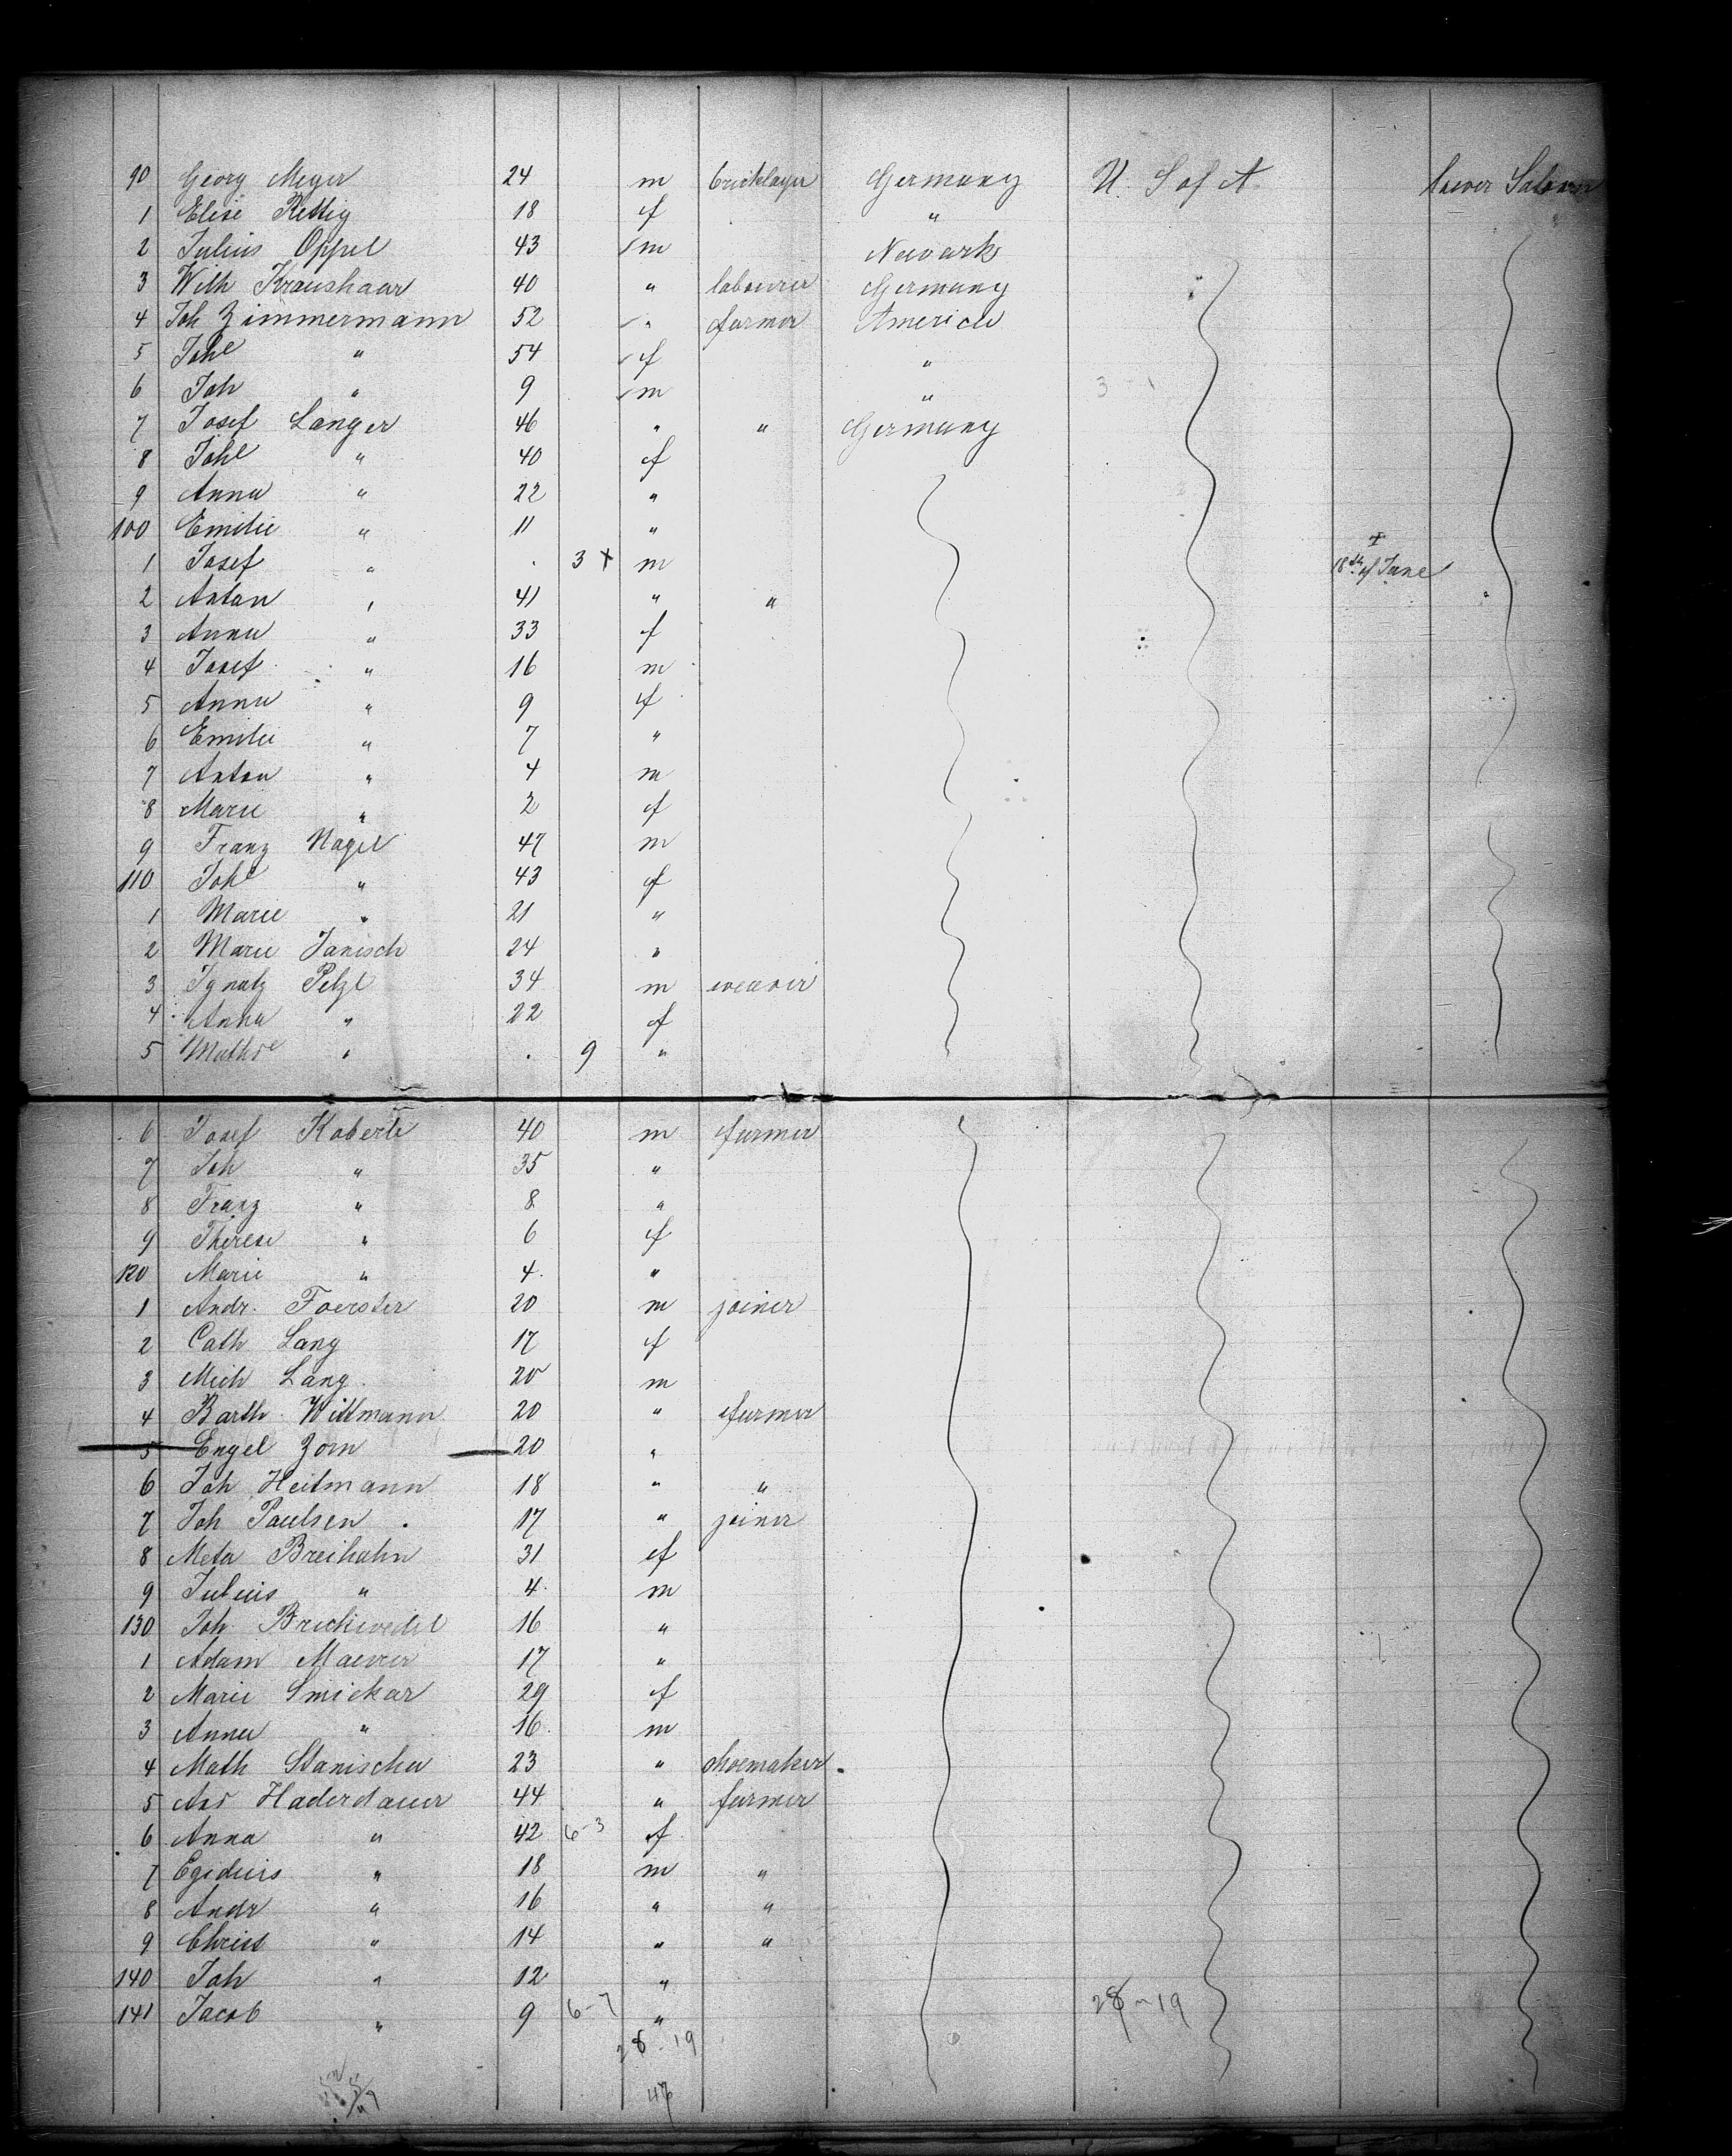 90 Georg Meyer 24 m bricklayer Germany U. S of A Lower Saloon
1 Elise Rettig 18 f " "
2 Julius Oppel 43 m Newark
3 Wilh Kraushaar 40 " labourer Germany
4 Joh Zimmermann 52 " farmer America
5 Johe " 54 f "
6 Joh " 9 m "
7 Josef Langer 46 " " Germany
8 Johe " 40 f
9 Anna " 22 "
100 Emilie " 11 "
1 Josef " . 3 + m + 18th of June
2 Anton " 41 " "
3 Anna " 33 f
4 Josef " 16 m
5 Anna " 9 f
6 Emilie " 7 "
7 Anton " 4 m
8 Marie " 2 f
9 Franz Nagel 47 m
110 Johe " 43 f
1 Marie " 21 "
2 Marie Janisch 24 "
3 Ignatz Pelzl 34 m weaver
4 Anna " 22 f
5 Mathe " . 9 "
6 Josef Koberle 40 m farmer
7 Joh " 35 "
8 Franz " 8 "
9 Therese " 6 f
120 Marie " 4 "
1 Andr. Foerster 20 m joiner
2 Cath Lang 17 f
3 Mich Lang 20 m
4 Barth. Wittmann 20 " farmer
5 Engel Zorn 20 "
6 Joh Heitmann 18 " "
7 Joh Paulsen 17 " joiner
8 Meta Breihahn 31 f
9 Julius " 4 m
130 Joh Brickwedel 16 "
1 Adam Maurer 17 "
2 Marie Smickar 29 f
3 Anna " 16 m
4 Math Stanischa 23 " shoemaker
5 And Haderdauer 44 " farmer
6 Anna " 42 6-3 f
7 Egidius " 18 m "
8 Andr " 16 " "
9 Christ " 14 " "
140 Joh " 12 "
141 Jacob " 9 6-7 " 28-19
28-19
47